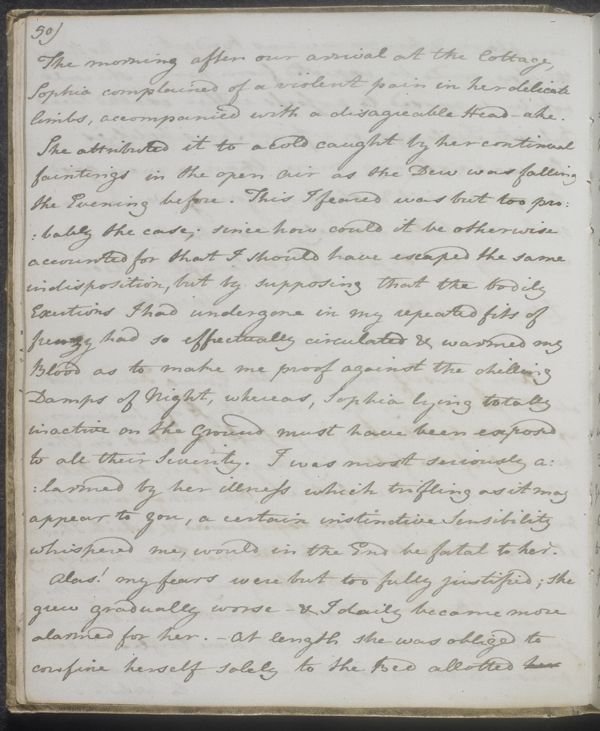 50)
The morning after our arrival at the Cottage,
Sophia complained of a violent pain in her delicate
limbs, accompanied with a disagreable Head-ake.
She attributed it to a cold caught by her continual
faintings in the open air as the Dew was falling
the Evening before. This I feared was but too pro:
:bably the case; since how could it be otherwise
accounted for that I should have escaped the same
indisposition, but by supposing that the bodily
Exertions I had undergone in my repeated fits of
frenzy had so effectually circulated & warmed my
Blood as to make me proof against the chilling
Damps of Night, whereas, Sophia lying totally
inactive on the Ground must have been exposed
to all their Severity. I was most seriously a:
:larmed by her illness which trifling as it may
appear to you, a certain instinctive Sensibility
whispered me, would in the End be fatal to her.
Alas! my fears were but too fully justified; she
grew gradually worse - & I daily became more
alarmed for her. - At length she was obliged to
confine herself solely to the Bed allotted her